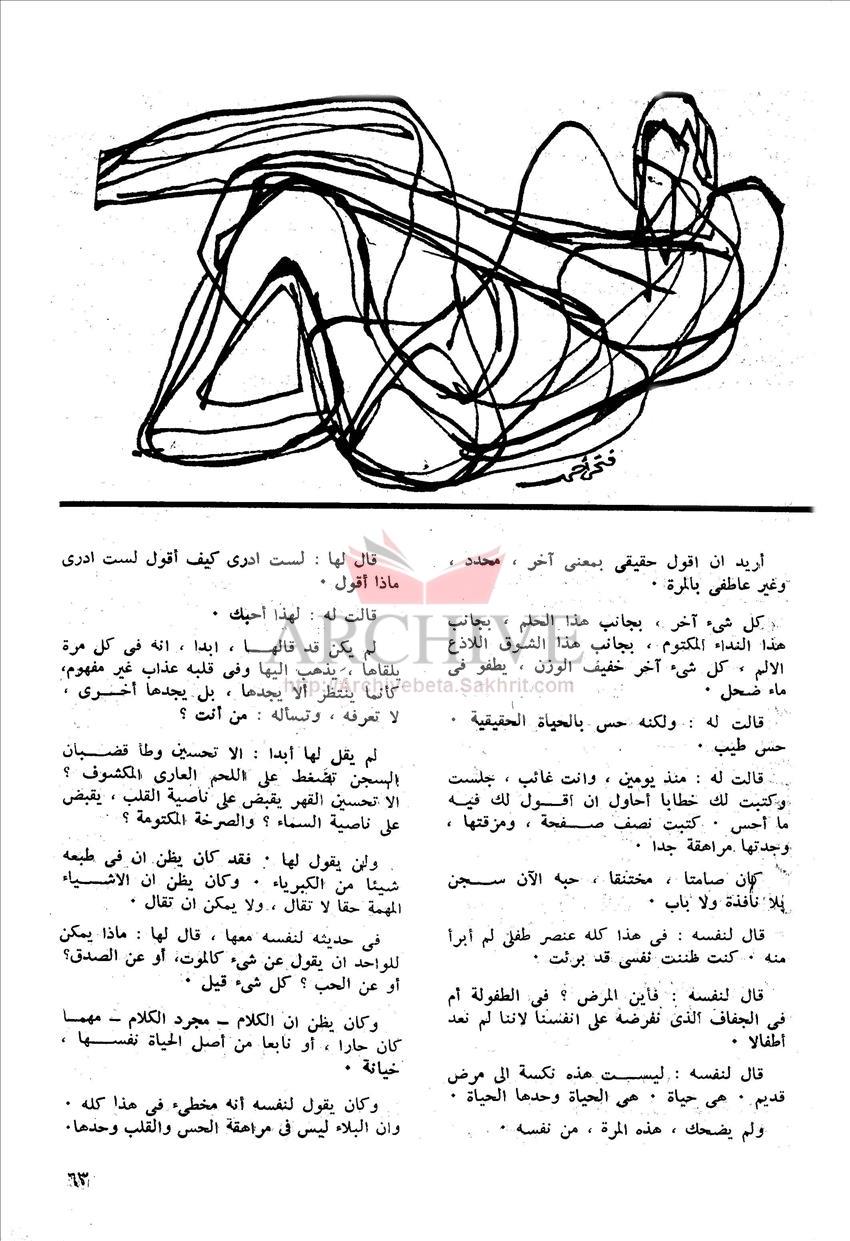 فتحى أحمد
أريد ان اقول حقيقى بمعنى آخر ، محدد ،
وغير عاطفى بالمرة ·
كل شىء آخر ، بجانب هذا الحلم ، بجانب
هذا النداء المكتوم ، بجانب هذا الشوق اللاذع
الالم ، كل شىء آخر خفيف الوزن ، يطفو فى
ماء ضحل ·
قالت له : ولكنه حس بالحياة الحقيقية ·
حس طيب ·
قالت له : منذ يومين ، وانت غائب ، جلست
وكتبت لك خطابا أحاول ان اقــول لك فيــه
ما أحس · كتبت نصف صــفحة ، ومزقتها ،
وجدتها مراهقة جدا ·
كان صامتا ، مختنقا ، حبه الآن ســجن
بلا نافذة ولا باب ·
قال لنفسه : فى هذا كله عنصر طفلى لم أبرأ
منه · كنت ظننت نفسى قد برئت ·
قال لنفسه : فأين المرض ؟ فى الطفولة أم
فى الجفاف الذى نفرضه على انفسنا لاننا لم نعد
أطفالا ·
قال لنفسه : ليســت هذه نكسة الى مرض
قديم · هى حياة · هى الحياة وحدها الحياة ·
ولم يضحك ، هذه المرة ، من نفسه ·
قال لها : لست ادرى كيف أقول لست ادرى
ماذا أقول ·
قالت له : لهذا أحبك ·
لم يكن قد قالهــا ، ابدا ، انه فى كل مرة
يلقاها ، يذهب اليها وفى قلبه عذاب غير مفهوم،
كأنما ينتظر ألا يجدها ، بل يجدها أخــرى ،
لا تعرفه ، وتسأله : من أنت ؟
لم يقل لها أبدا : الا تحسين وطأ قضــبان
السجن تضغط على اللحم العارى المكشوف ؟
الا تحسين القهر يقبض على ناصية القلب ، يقبض
على ناصية السماء ؟ والصرخة المكتومة ؟
ولن يقول لها · فقد كان يظن ان فى طبعه
شيئا من الكبرياء · وكان يظن ان الاشــياء
المهمة حقا لا تقال ، ولا يمكن ان تقال ·
فى حديثه لنفسه معها ، قال لها : ماذا يمكن
للواحد ان يقول عن شىء كالموت، أو عن الصدق؟
أو عن الحب ؟ كل شىء قيل ·
وكان يظن ان الكلام – مجرد الكلام – مهمــا
كان حارا ، أو نابعا من أصل الحياة نفســها ،
خيانة ·
وكان يقول لنفسه أنه مخطىء فى هذا كله ·
وان البلاء ليس فى مراهقة الحس والقلب وحدها·
ARCHIVE
http://Archivebeta.Sakhrit.com
٦٣